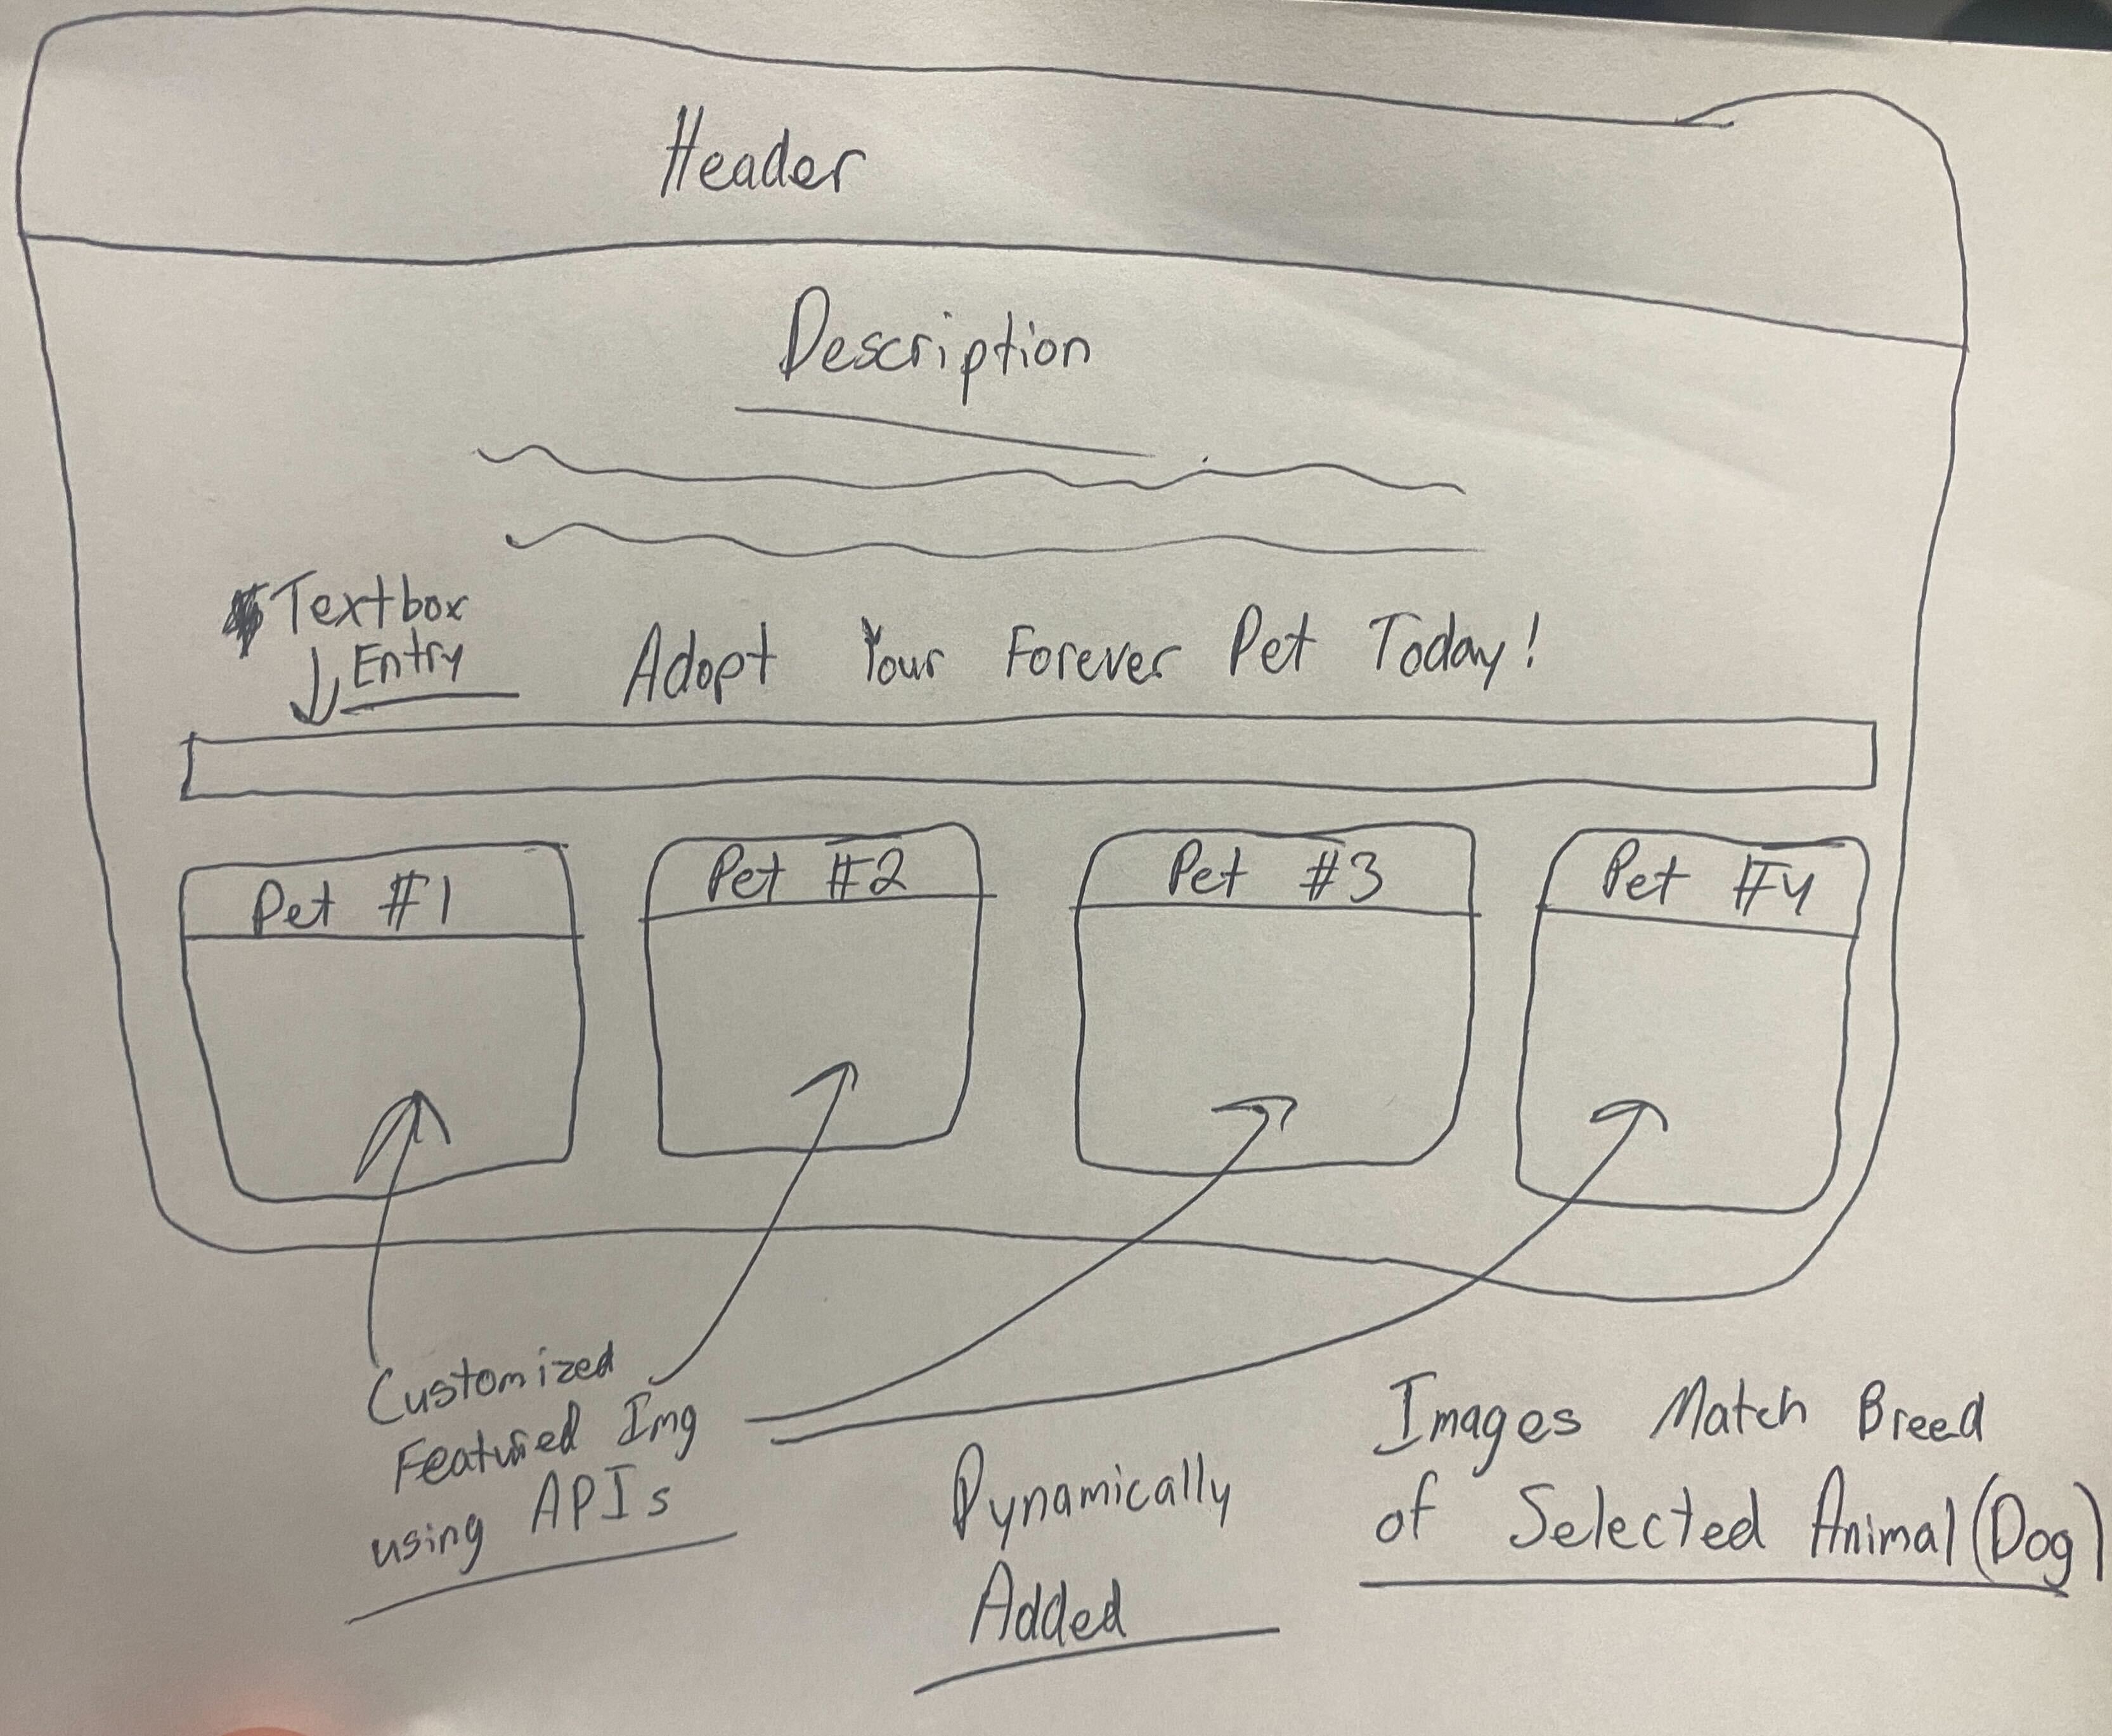 Header
Description
Textbox
Entry
Adopt Your Forever Pet Today!
Pet #1
Pet #2
Pet #3
Pet #4
Customized
Featured Img
using APIs
Dynamically
Added
Images Match Breed
of Selected Animal (Dog)